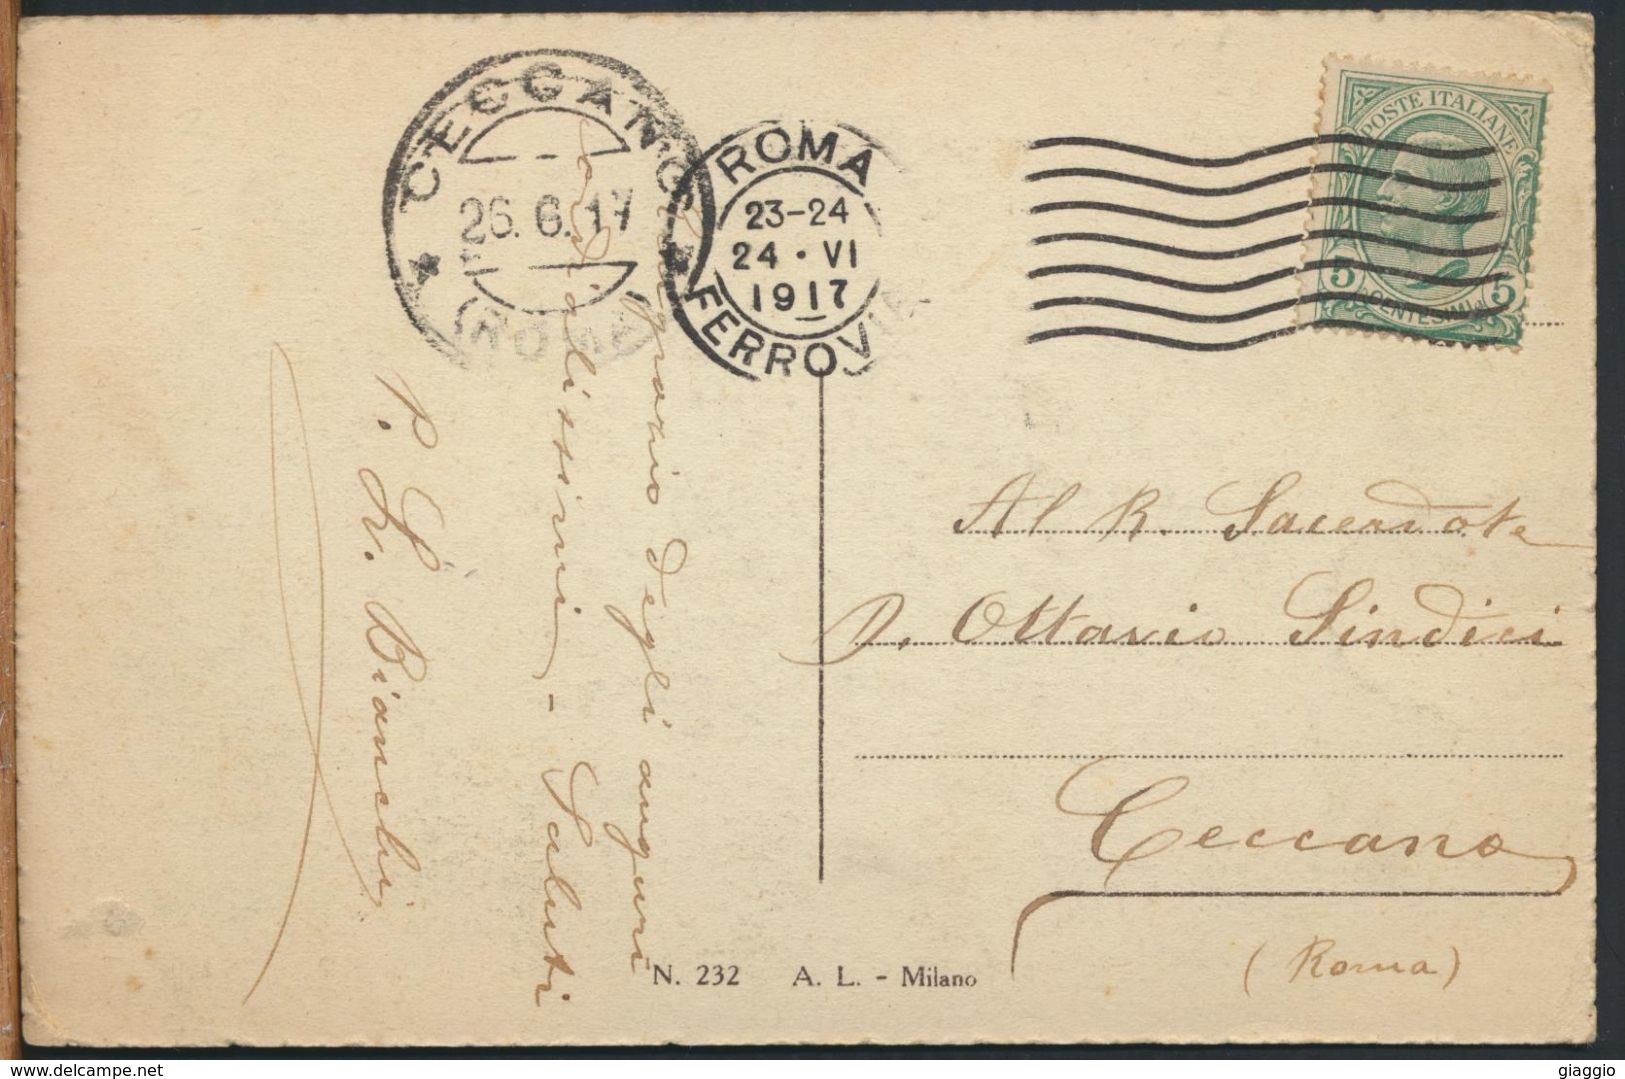 CECCANO
26.6.17
(ROMA)
ROMA
23-24
24 · VI
1917
FERROVIA
POSTE ITALIANE
5 CENTESIMI 5
Ringrazio degli auguri
cordialissimi - Saluti
P. L. Bianchi
Al R. Sacerdote
D. Ottavio Sindici
Ceccano
(Roma)
N. 232 A. L. - Milano
giaggio
delcampe.net